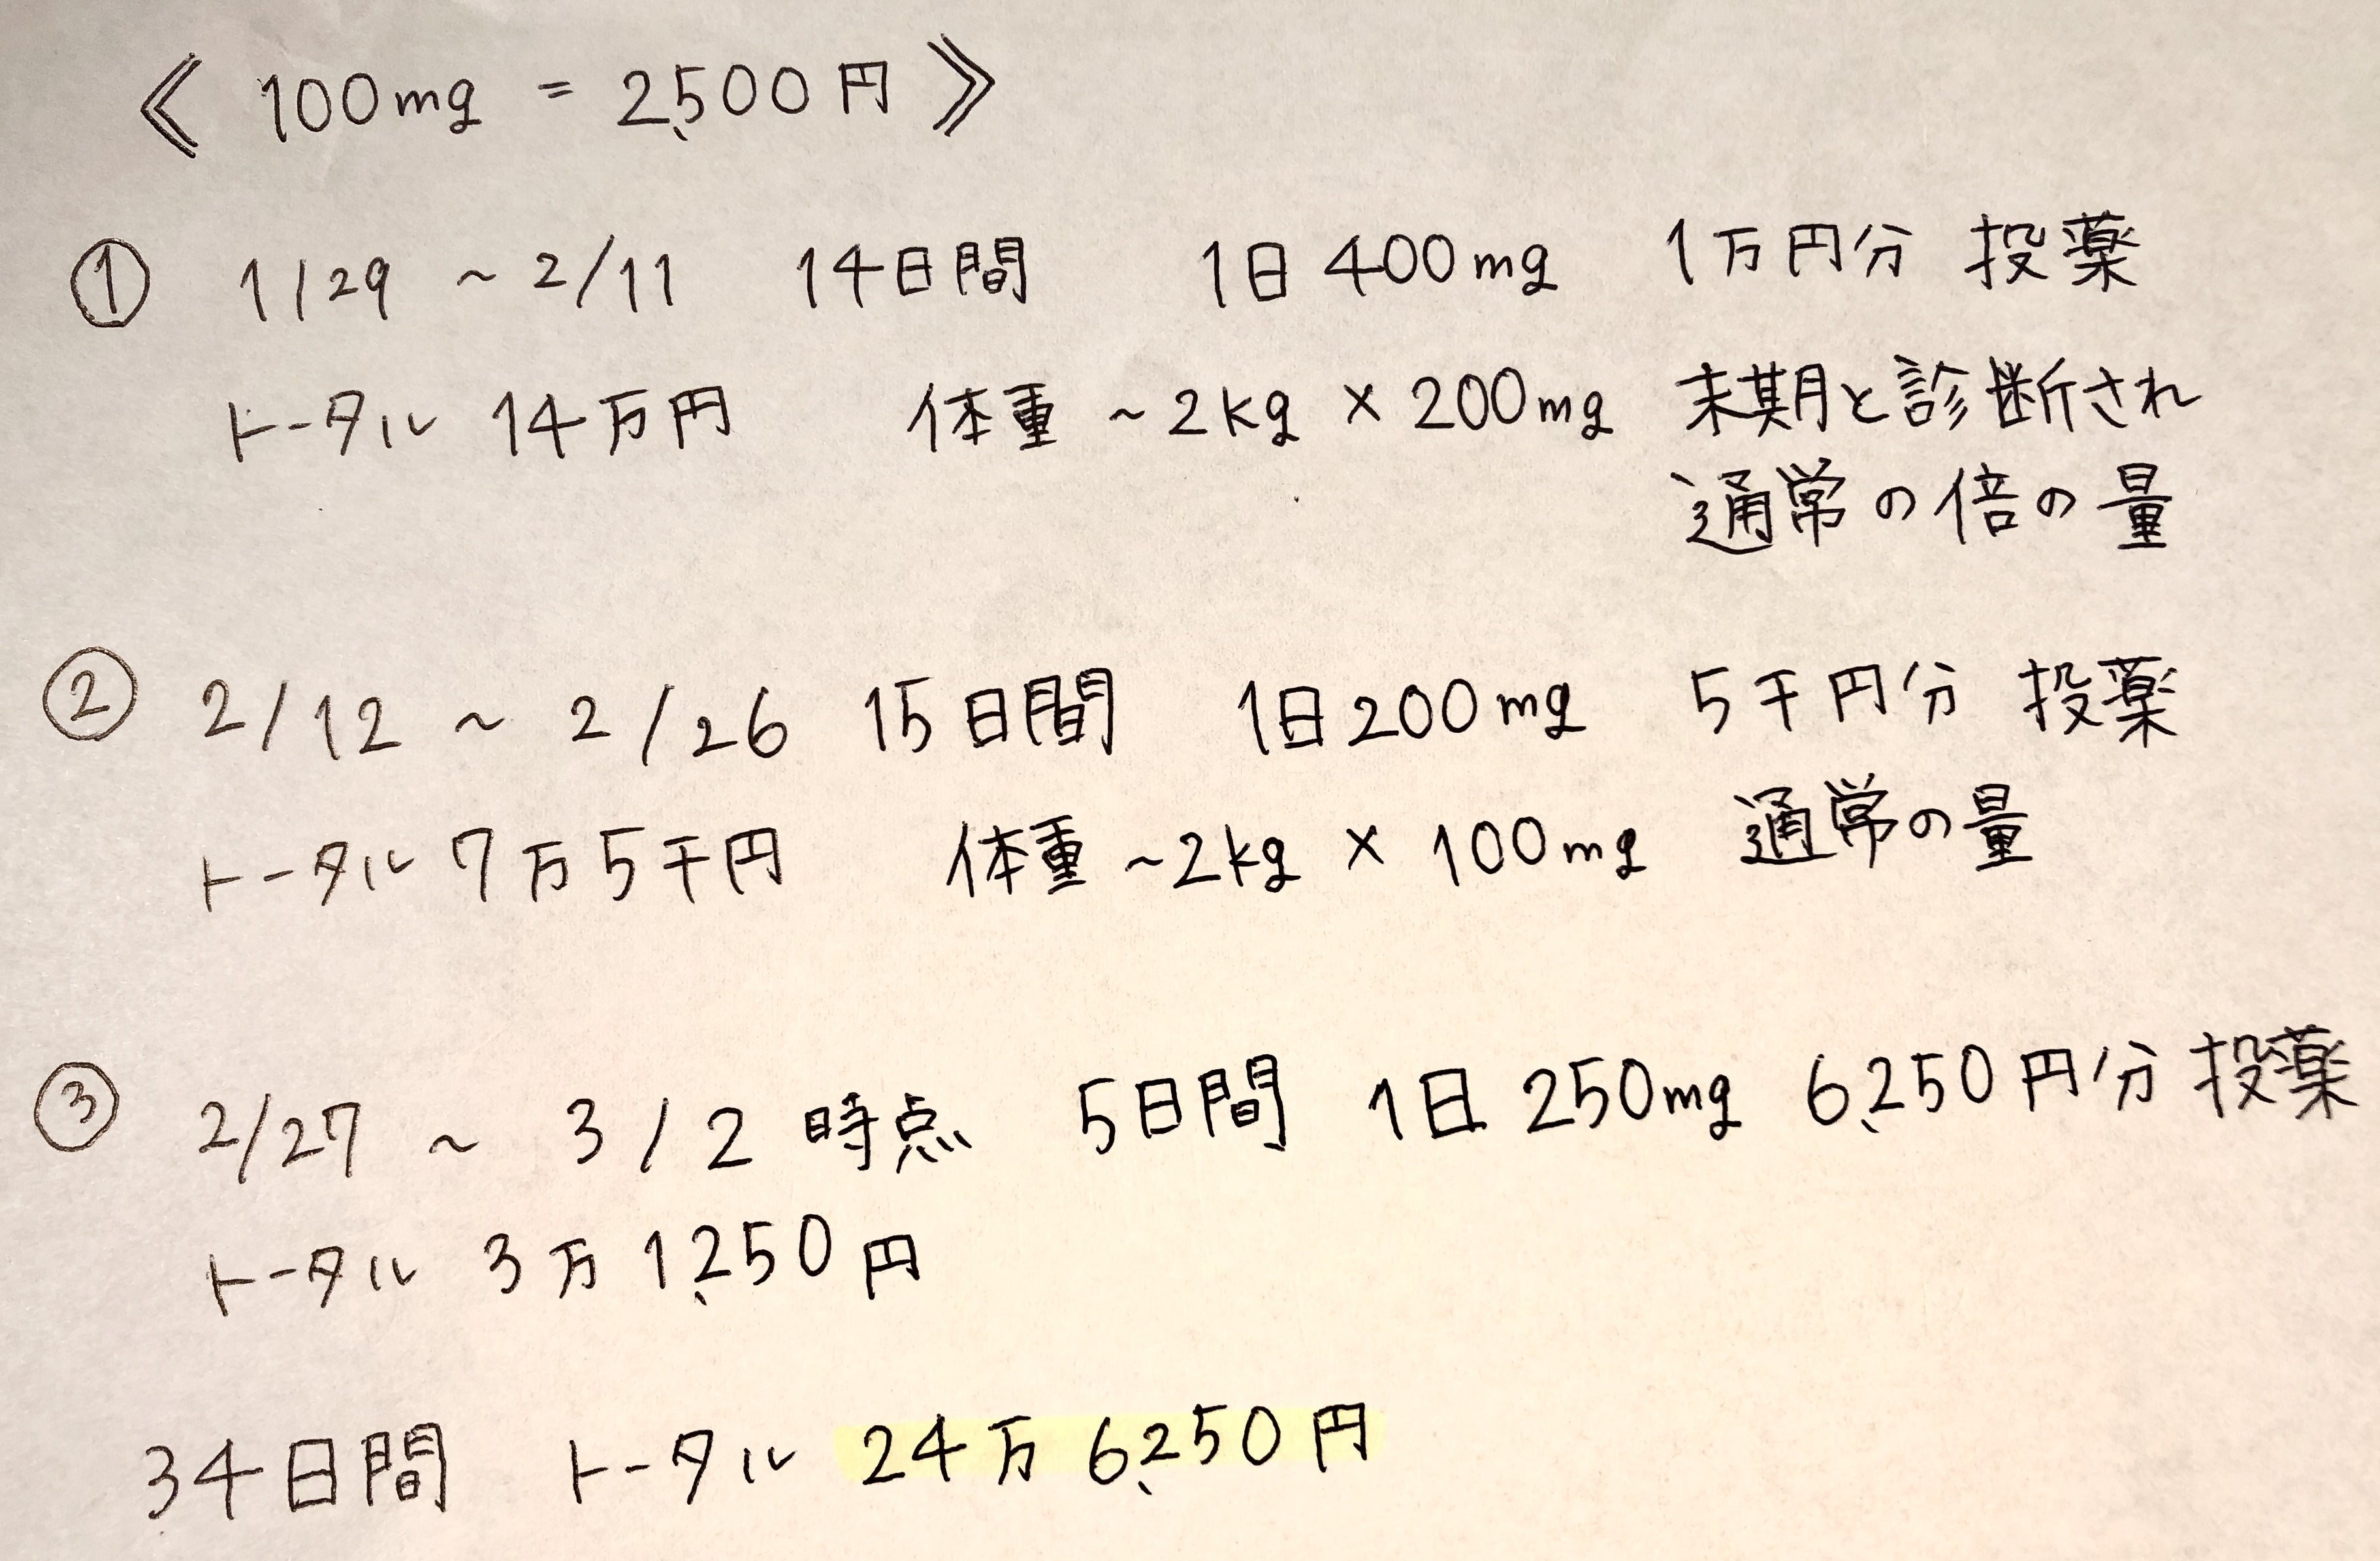 《 100mg = 2,500円 》
① 1/29 ~ 2/11 14日間 1日 400mg 1万円分 投薬
トータル 14万円 体重 ~2kg × 200mg 末期と診断され
通常の倍の量
② 2/12 ~ 2/26 15日間 1日200mg 5千円分 投薬
トータル 7万5千円 体重 ~2kg × 100mg 通常の量
③ 2/27 ~ 3/2 時点 5日間 1日 250mg 6,250円分 投薬
トータル 3万1,250円
34日間 トータル 24万6,250円